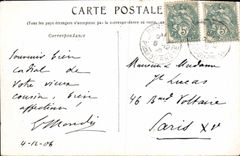 CARTE POSTALE
(Tous les pays étrangers n'acceptent pas la correspondance au recto.)
Correspondance
Souvenir bien
cordial de
votre vieux
cousin, bien
affectueux!
4-12-06
5
5
Monsieur & Madame
Js Lucas
46 Bard Voltaire
Paris XIe